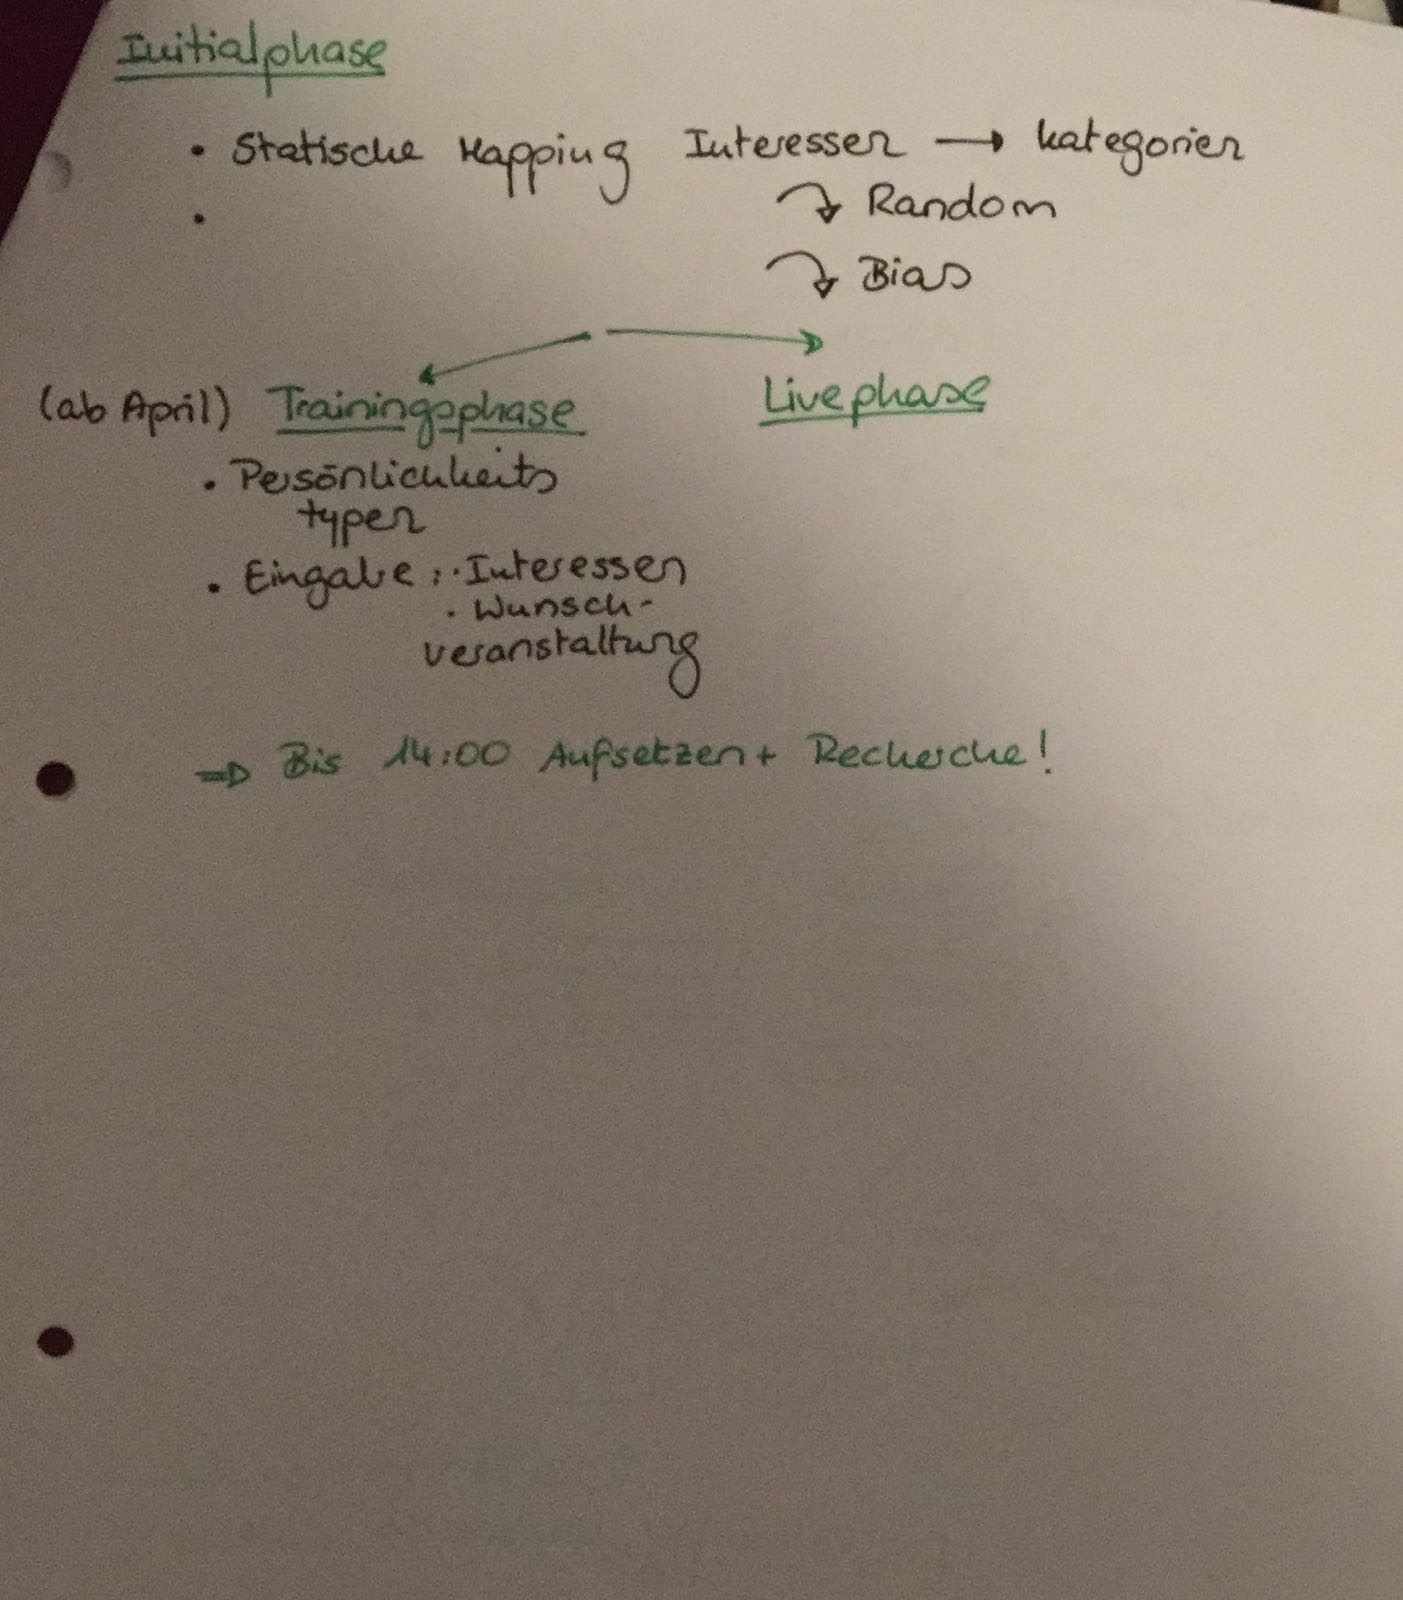 Initialphase
• Statische Mapping Interessen → Kategorien
↷ Random
•
↷ Bias
(ab April) Trainingsphase Livephase
• Persönlichkeits
typen
• Eingabe: · Interessen
· Wunsch-
veranstaltung
⇒ Bis 14:00 Aufsetzen + Recherche!